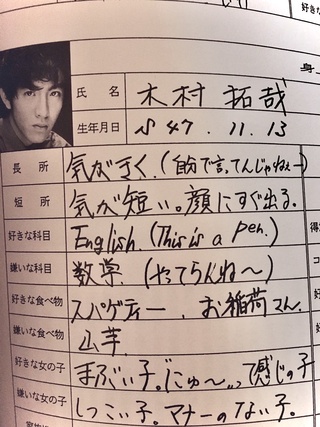 好きな
身
氏名 木村 拓哉
生年月日 S47.11.13
長所 気がきく。(自分で言ってんじゃねぇー)
短所 気が短い。顔にすぐ出る。
好きな科目 English.(This is a pen.)
嫌いな科目 数学。(やってらんね〜)
好きな食べ物 スパゲティー、お稲荷さん。
嫌いな食べ物 山芋。
好きな女の子 まぶい子。にゅ〜って感じの子
嫌いな女の子 しつこい子。マナーのない子。